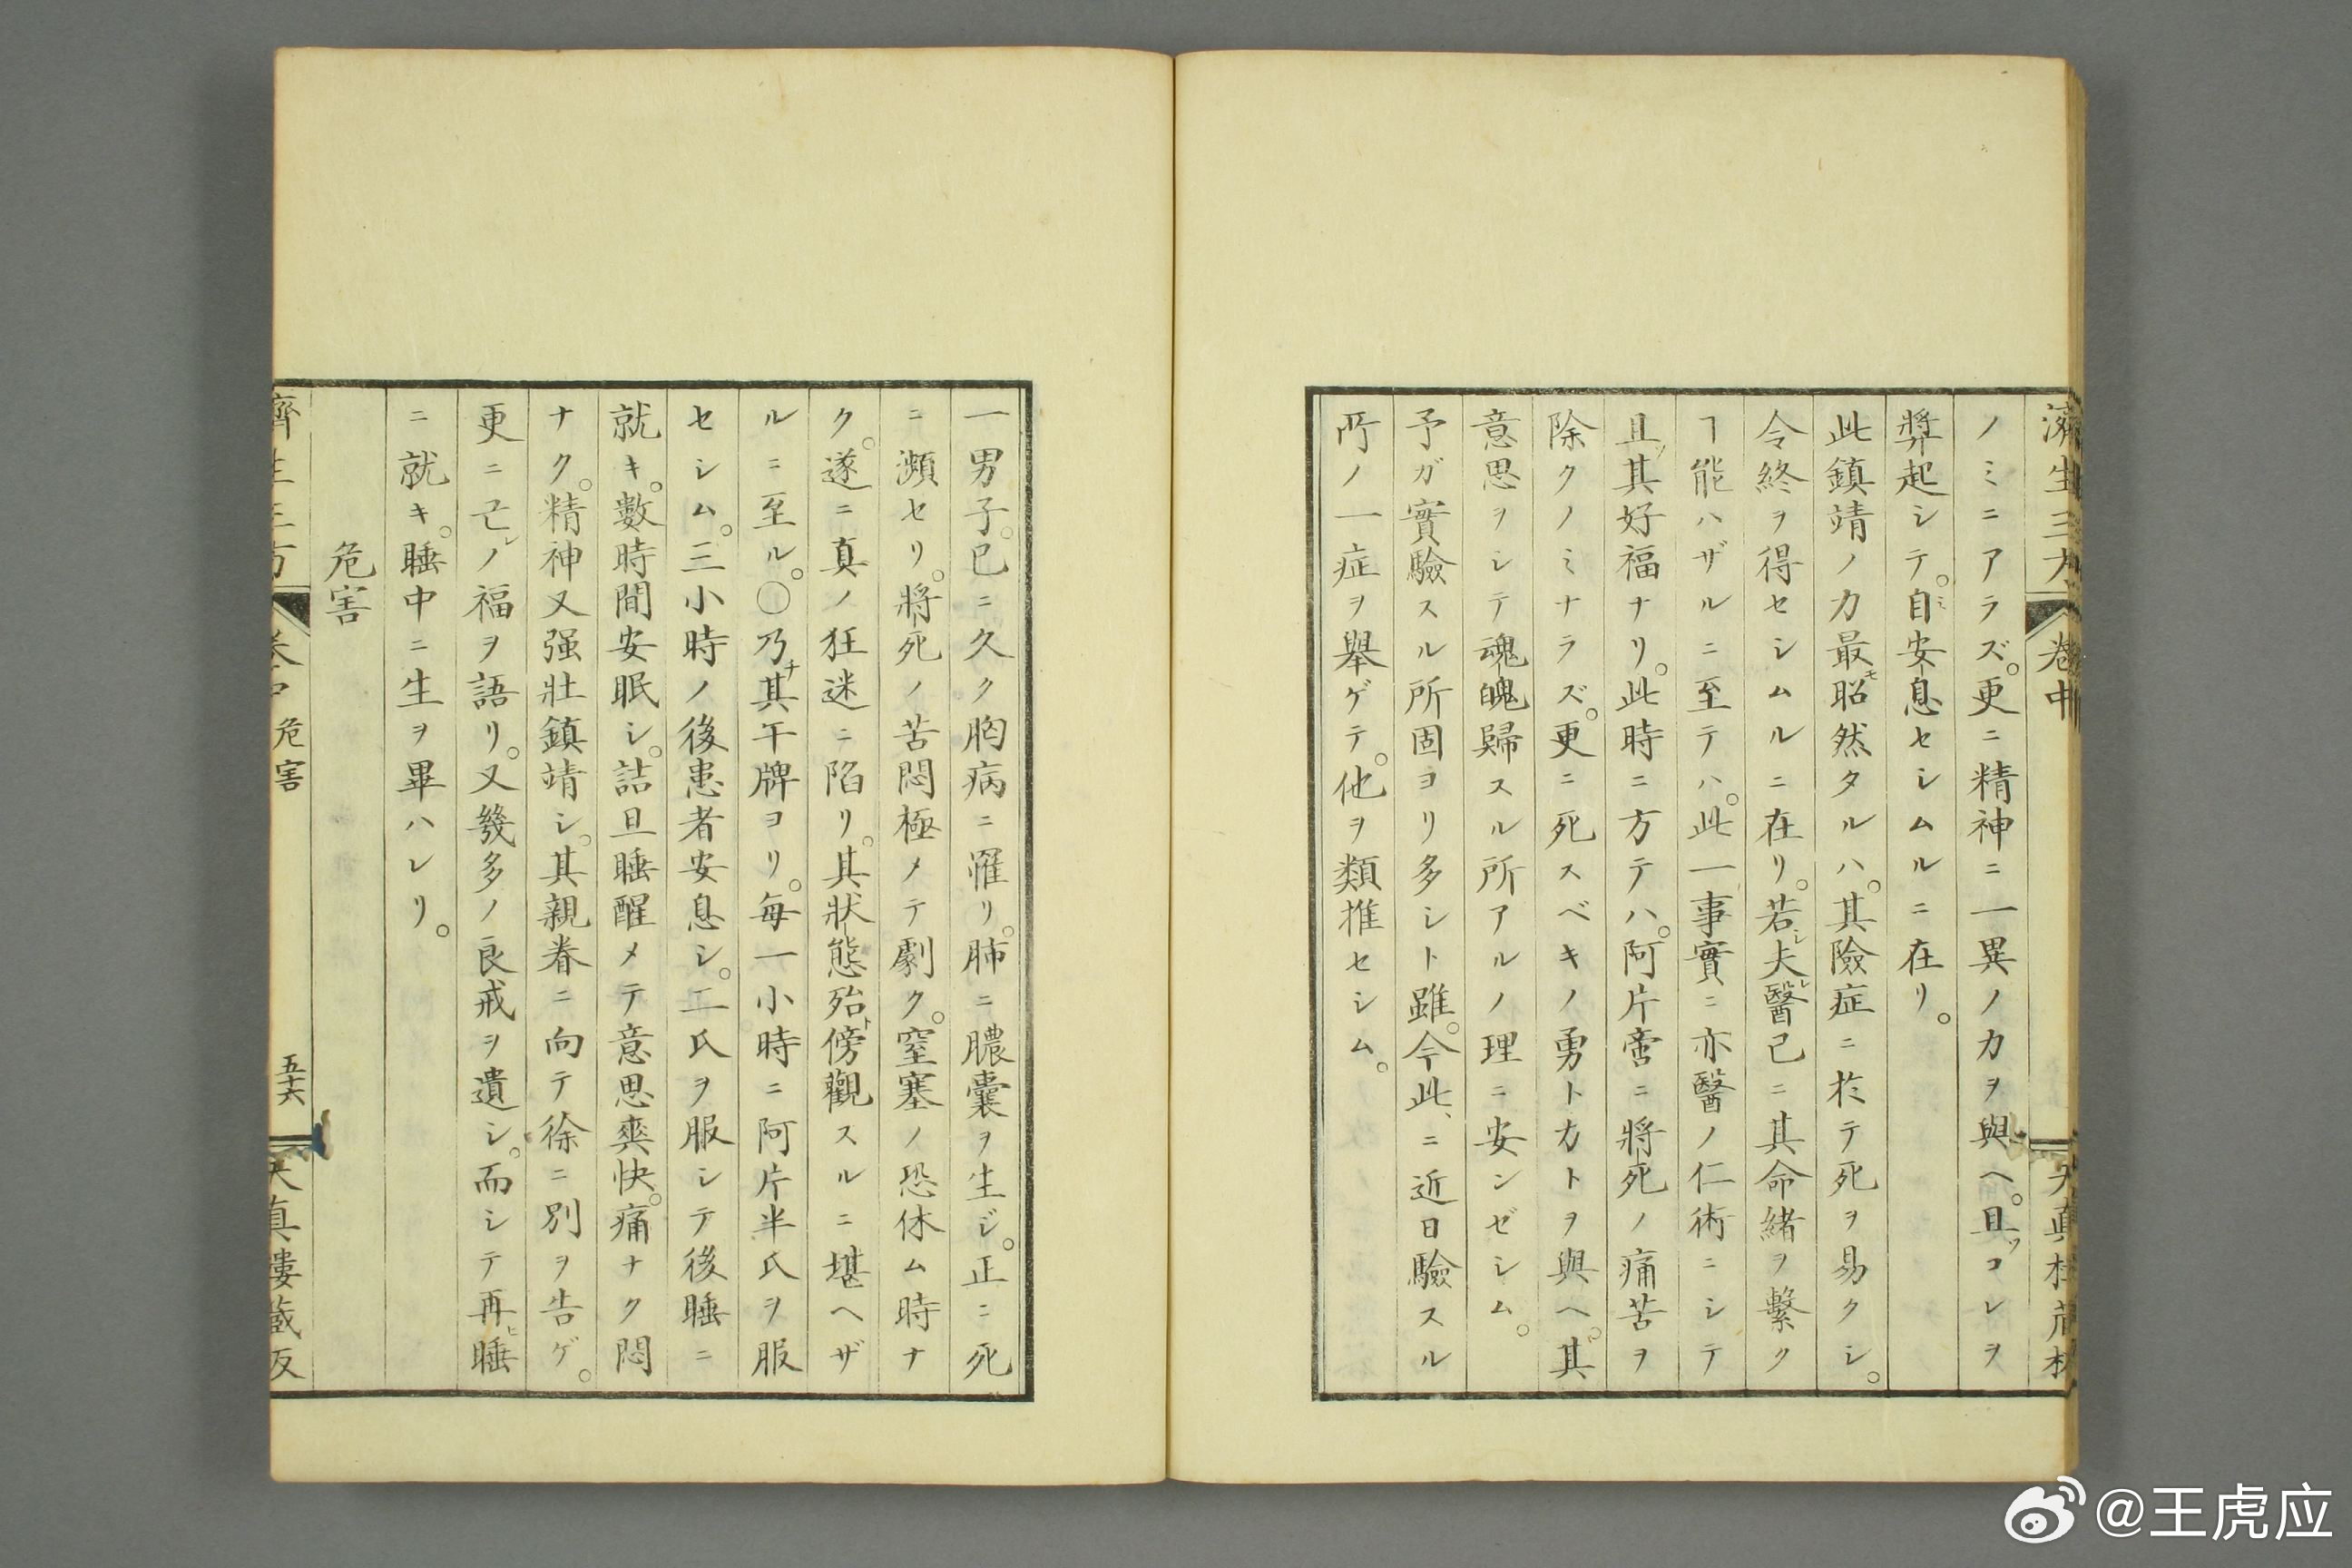 濟生三方 卷中
ノミニアラズ。更ニ精神ニ一異ノ力ヲ與ヘ。且ツコレヲ
弊起シテ。自ミ安息セシムルニ在リ。
此鎮靖ノ力最モ昭然タルハ。其險症ニ於テ死ヲ易クシ。
令終ヲ得セシムルニ在リ。若シ夫レ醫已ニ其命緒ヲ繫ク
ヿ能ハザルニ至テハ。此一事實ニ亦醫ノ仁術ニシテ
且ツ其好福ナリ。此時ニ方テハ。阿片啻ニ將死ノ痛苦ヲ
除クノミナラズ。更ニ死スベキノ勇ト力トヲ與ヘ。其
意思ヲシテ魂魄歸スル所アルノ理ニ安ンゼシム。
予ガ實驗スル所固ヨリ多シト雖。今此ニ近日驗スル
所ノ一症ヲ舉ゲテ。他ヲ類推セシム。
一男子。已ニ久ク胸病ニ罹リ。肺ニ膿囊ヲ生ジ。正ニ死
ニ瀕セリ。將死ノ苦悶極メテ劇ク。窒塞ノ恐休ム時ナ
ク。遂ニ真ノ狂迷ニ陷リ。其狀態殆ト傍觀スルニ堪ヘザ
ルニ至ル。〇乃チ其午牌ヨリ。每一小時ニ阿片半氏ヲ服
セシム。三小時ノ後患者安息シ。二氏ヲ服シテ後睡ニ
就キ。數時間安眠シ。詰旦睡醒メテ意思爽快。痛ナク悶
ナク。精神又强壯鎮靖シ。其親眷ニ向テ徐ニ別ヲ告ゲ。
更ニ亡レノ福ヲ語リ。又幾多ノ良戒ヲ遺シ。而シテ再ヒ睡
ニ就キ。睡中ニ生ヲ畢ハレリ。
危害
濟生三方 卷中 危害 五十六 天真樓藏版
@王虎应